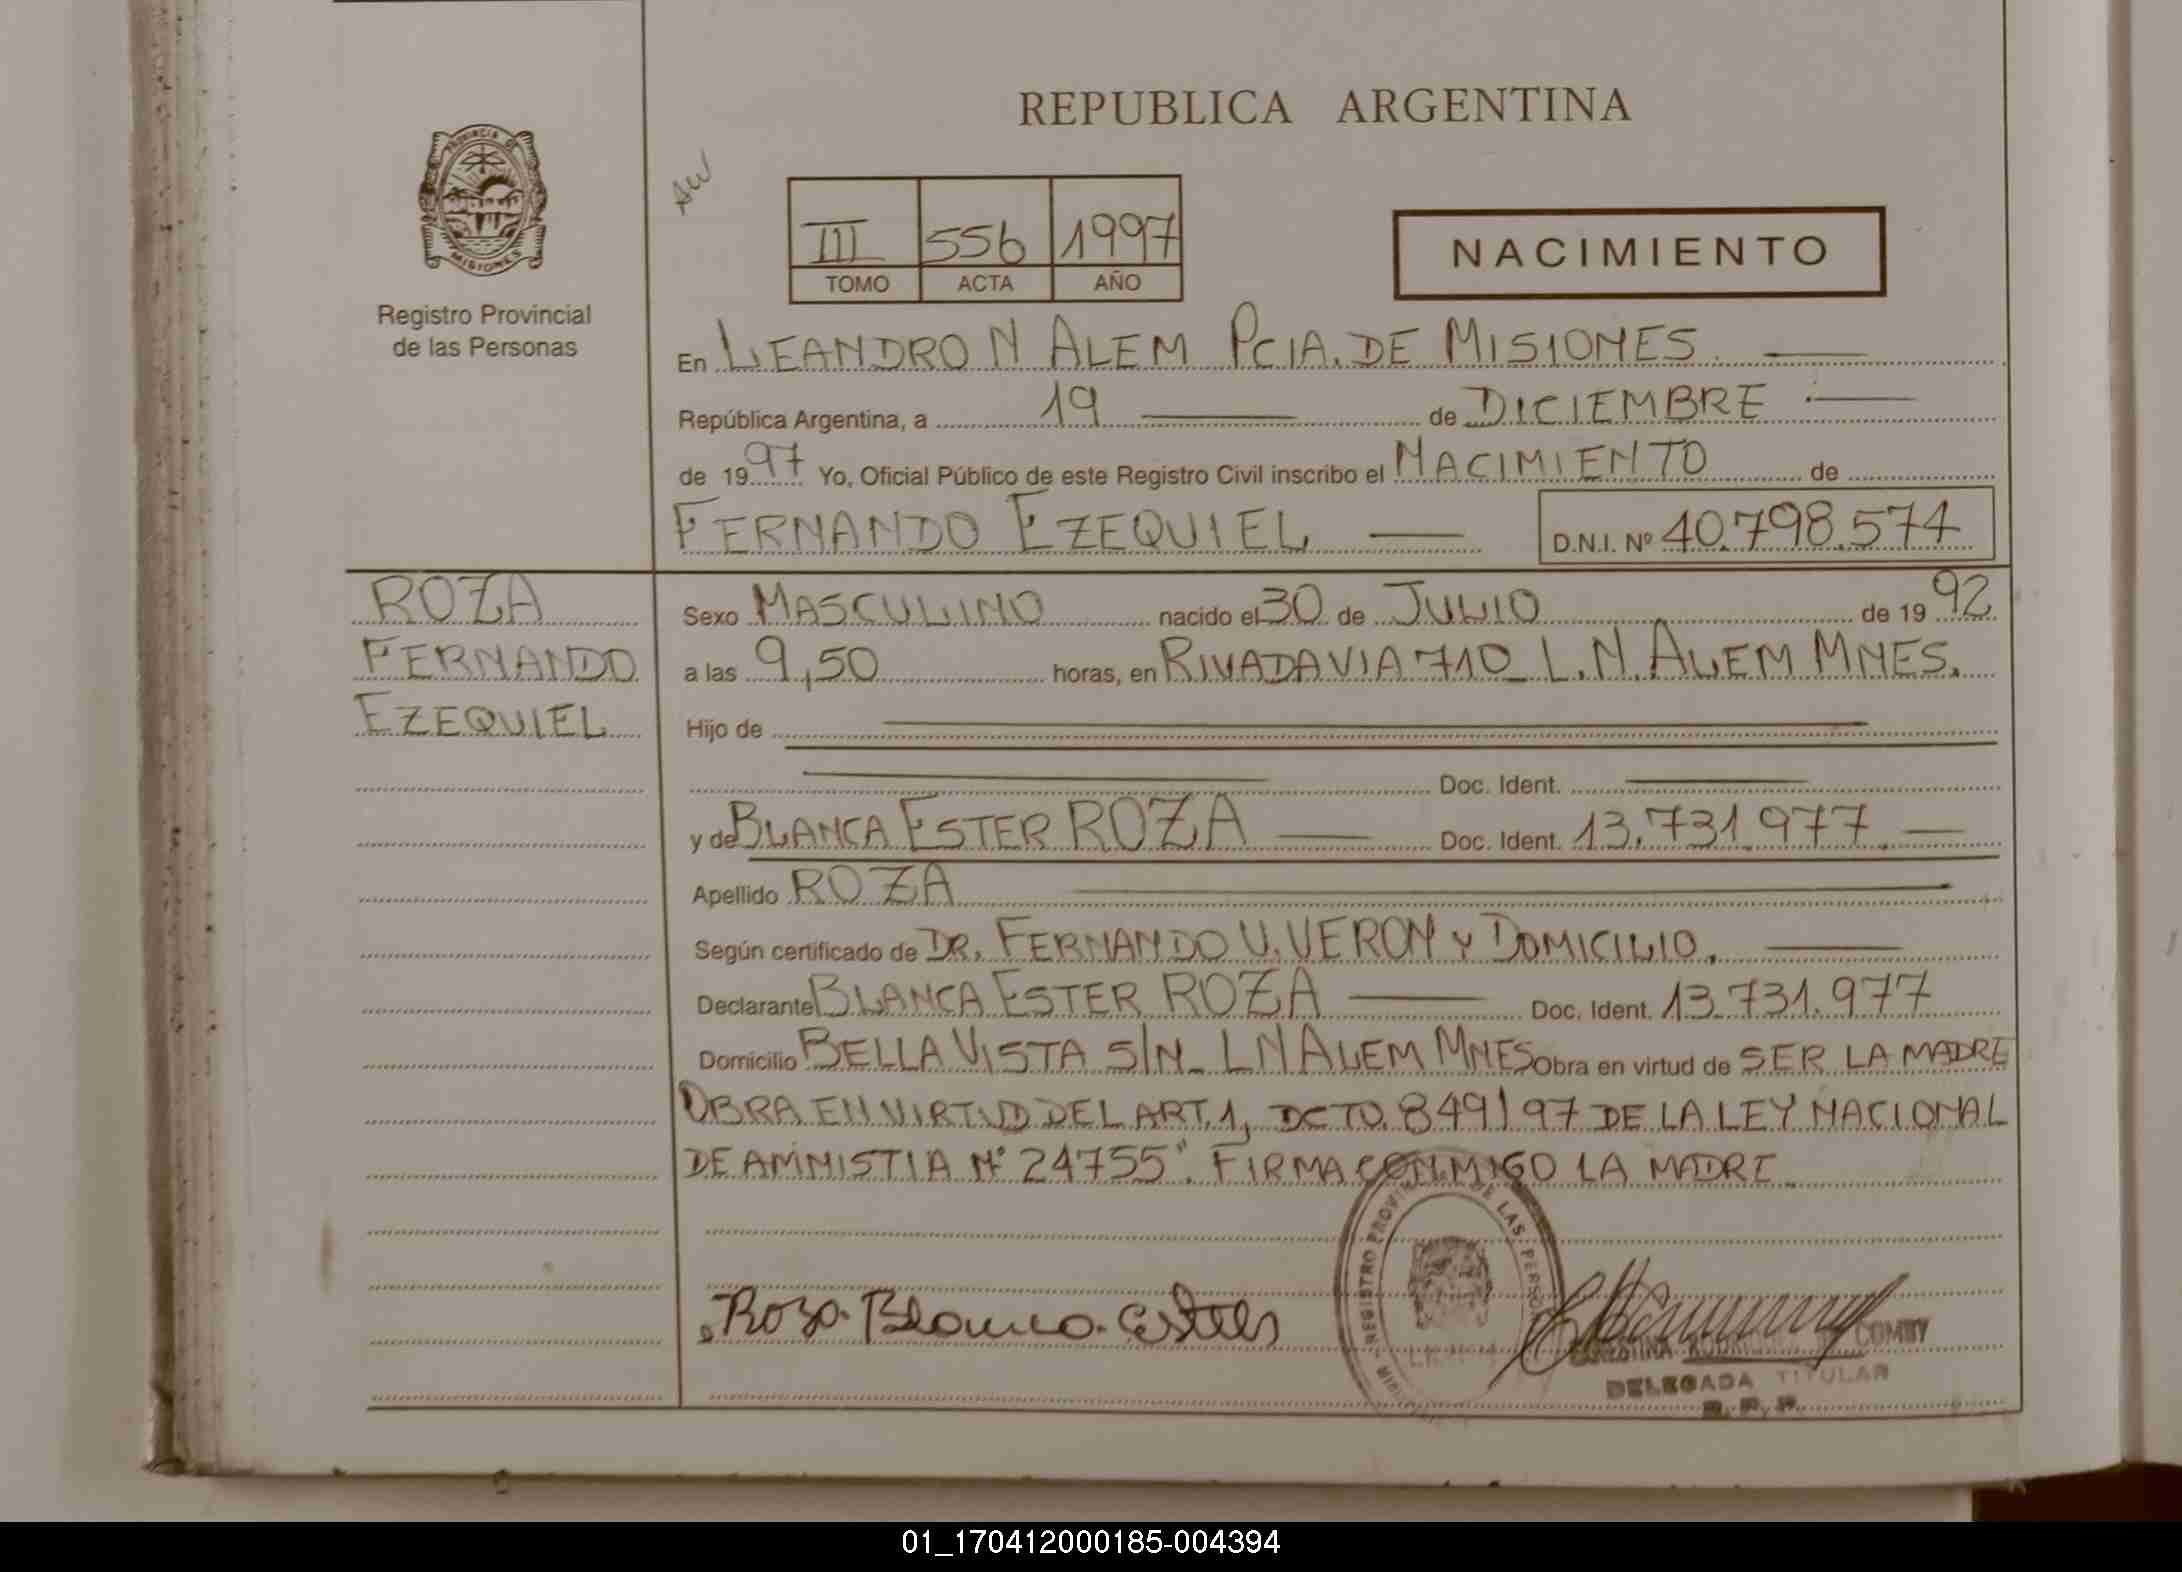 REPUBLICA ARGENTINA
PROVINCIA DE
MISIONES
Registro Provincial
de las Personas
III 556 1997
TOMO ACTA AÑO
NACIMIENTO
En LEANDRO N ALEM PCIA. DE MISIONES.
República Argentina, a 19 de DICIEMBRE
de 1997 Yo, Oficial Público de este Registro Civil inscribo el NACIMIENTO de
FERNANDO EZEQUIEL D.N.I. Nº 40.798.574
ROZA
FERNANDO
EZEQUIEL
Sexo MASCULINO nacido el 30 de JULIO de 1992
a las 9,50 horas, en RIVADAVIA 710_ L.N. ALEM MNES.
Hijo de
Doc. Ident.
y de BLANCA ESTER ROZA Doc. Ident. 13.731.977.
Apellido ROZA
Según certificado de DR. FERNANDO U. VERON Y DOMICILIO.
Declarante BLANCA ESTER ROZA Doc. Ident. 13.731.977
Domicilio BELLA VISTA S/N_ LN ALEM MNES Obra en virtud de SER LA MADRE
OBRA EN VIRTUD DEL ART. 1, DCTO. 849/97 DE LA LEY NACIONAL
DE AMNISTIA Nº 24755". FIRMA CONMIGO LA MADRE.
Roza Blanca Ester
REGISTRO PROVINCIAL DE LAS PERSONAS
DELEGADA TITULAR
R. P. P.
01_170412000185-004394